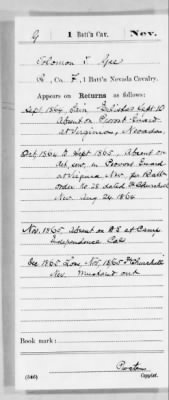 G | 1 Batt'n Cav. | Nev.
Solomon T. Gee
Co. F, 1 Batt'n Nevada Cavalry.
Appears on Returns as follows:
Sept 1864 Gain Enlisted Sept 10
Absent on Provost Guard
at Virginia, Nevada.
Oct, 1864 to Sept 1865. Absent on
det, serv, in Provost Guard
at Virginia Nev. per Batt
order No 28 dated Ft Churchill
Nev. Aug 24 1864
Nov. 1865 Absent on D S at Camp
Independence Cal
Dec 1865 Loss, Nov. 18/65 Ft Churchill
Nev. Mustered out
Book mark:
(546)
Copyist.